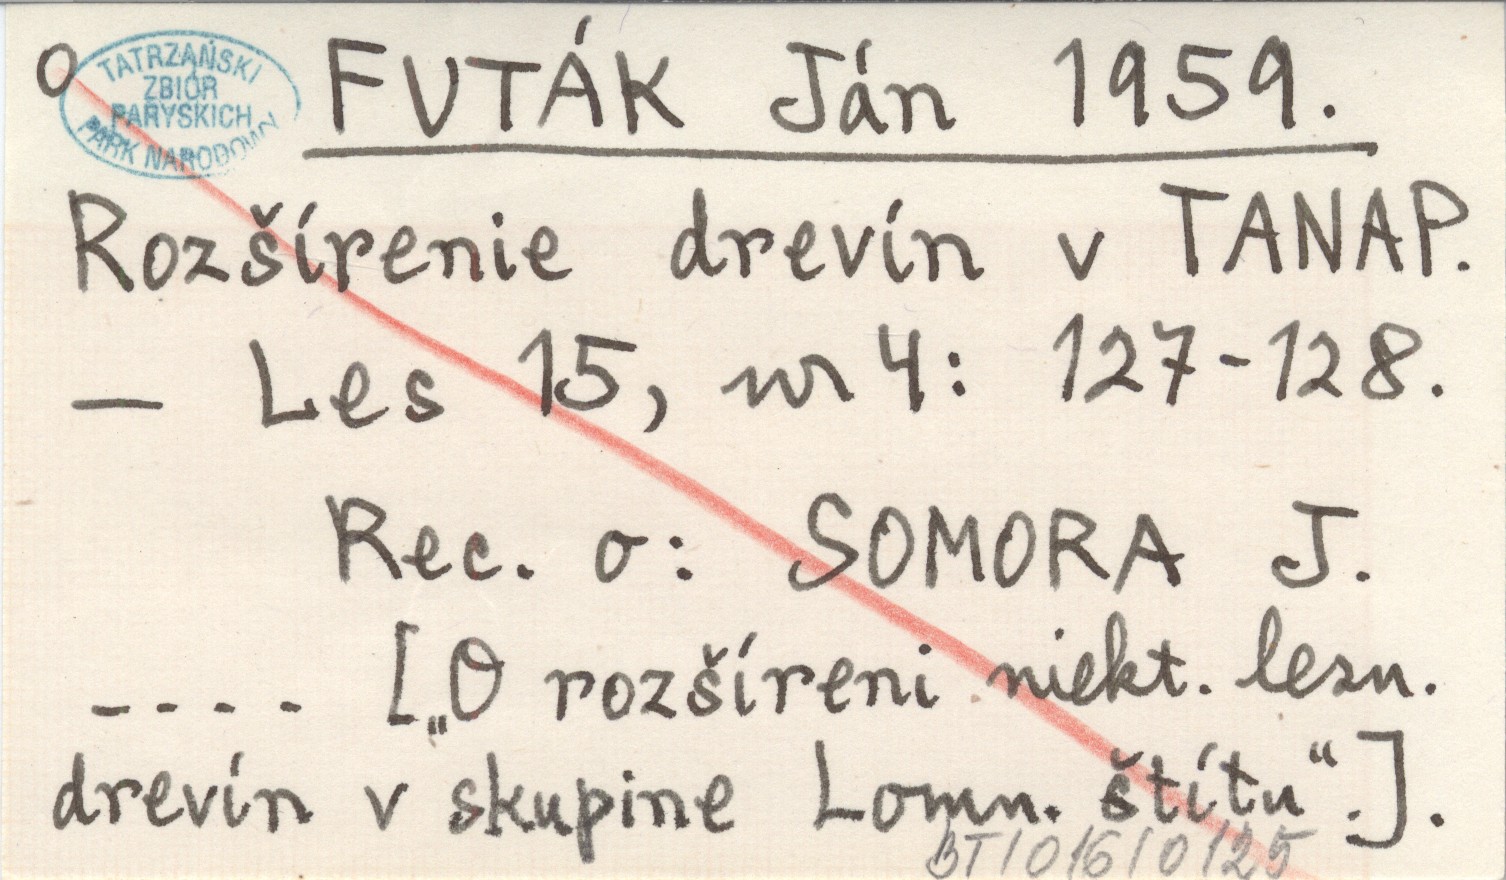 o
TATRZAŃSKI
ZBIÓR
PARYSKICH
PARK NARODOWY
FUTÁK Ján 1959.
Rozšírenie drevín v TANAP.
— Les 15, nr 4: 127-128.
Rec. o: SOMORA J.
---- [„O rozšíreni niekt. lesn.
drevín v skupine Lomn. štítu“.].
BT/016/0/25